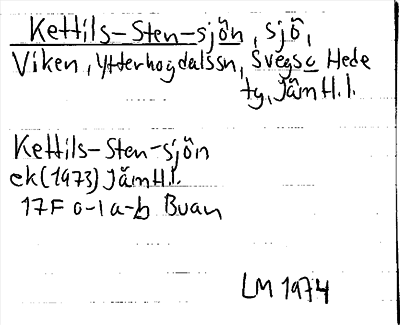 Kettils-Sten-sjön, sjö,
Viken, Ytterhogdalssn, Svegs o Hede
tg, JämtI.l.
Kettils-Sten-sjön
ek(1973) JämtI.l.
17F 0-1 a-b Buan
LM 1974